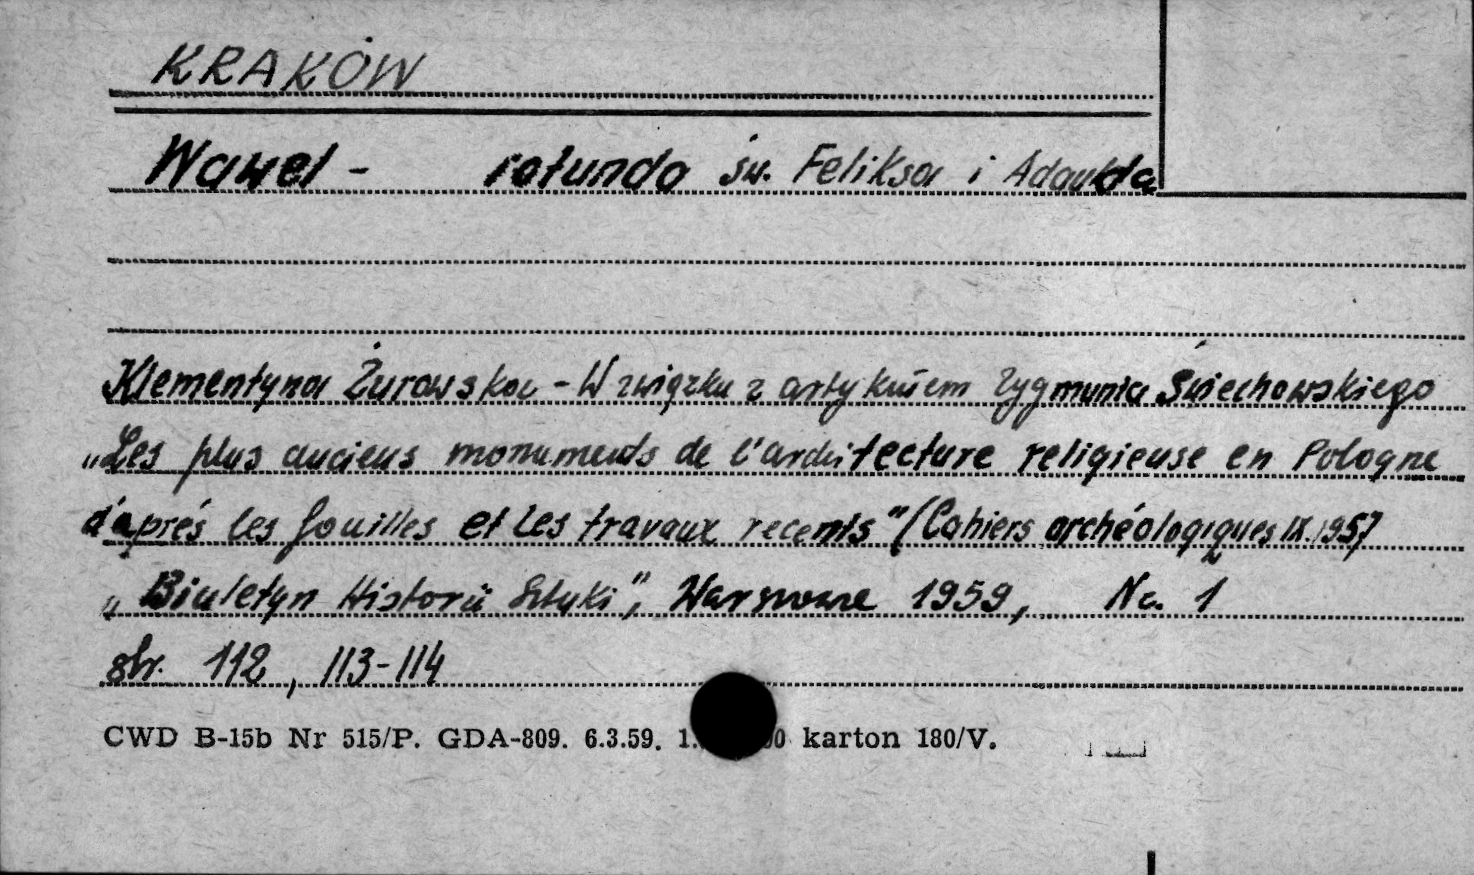 KRAKÓW
Wawel - rotunda św. Feliksa i Adaukta
Klementyna Żurowska - W związku z artykułem Zygmunta Świechowskiego
„Les plus anciens monuments de l'architecture religieuse en Pologne
d'aprés les fouilles et les travaux recents" (Cahiers archéologiques IX. 1957
„Biuletyn Historii Sztuki", Warszawa 1959, Nr. 1
str. 112, 113-114
CWD B-15b Nr 515/P. GDA-809. 6.3.59. karton 180/V.